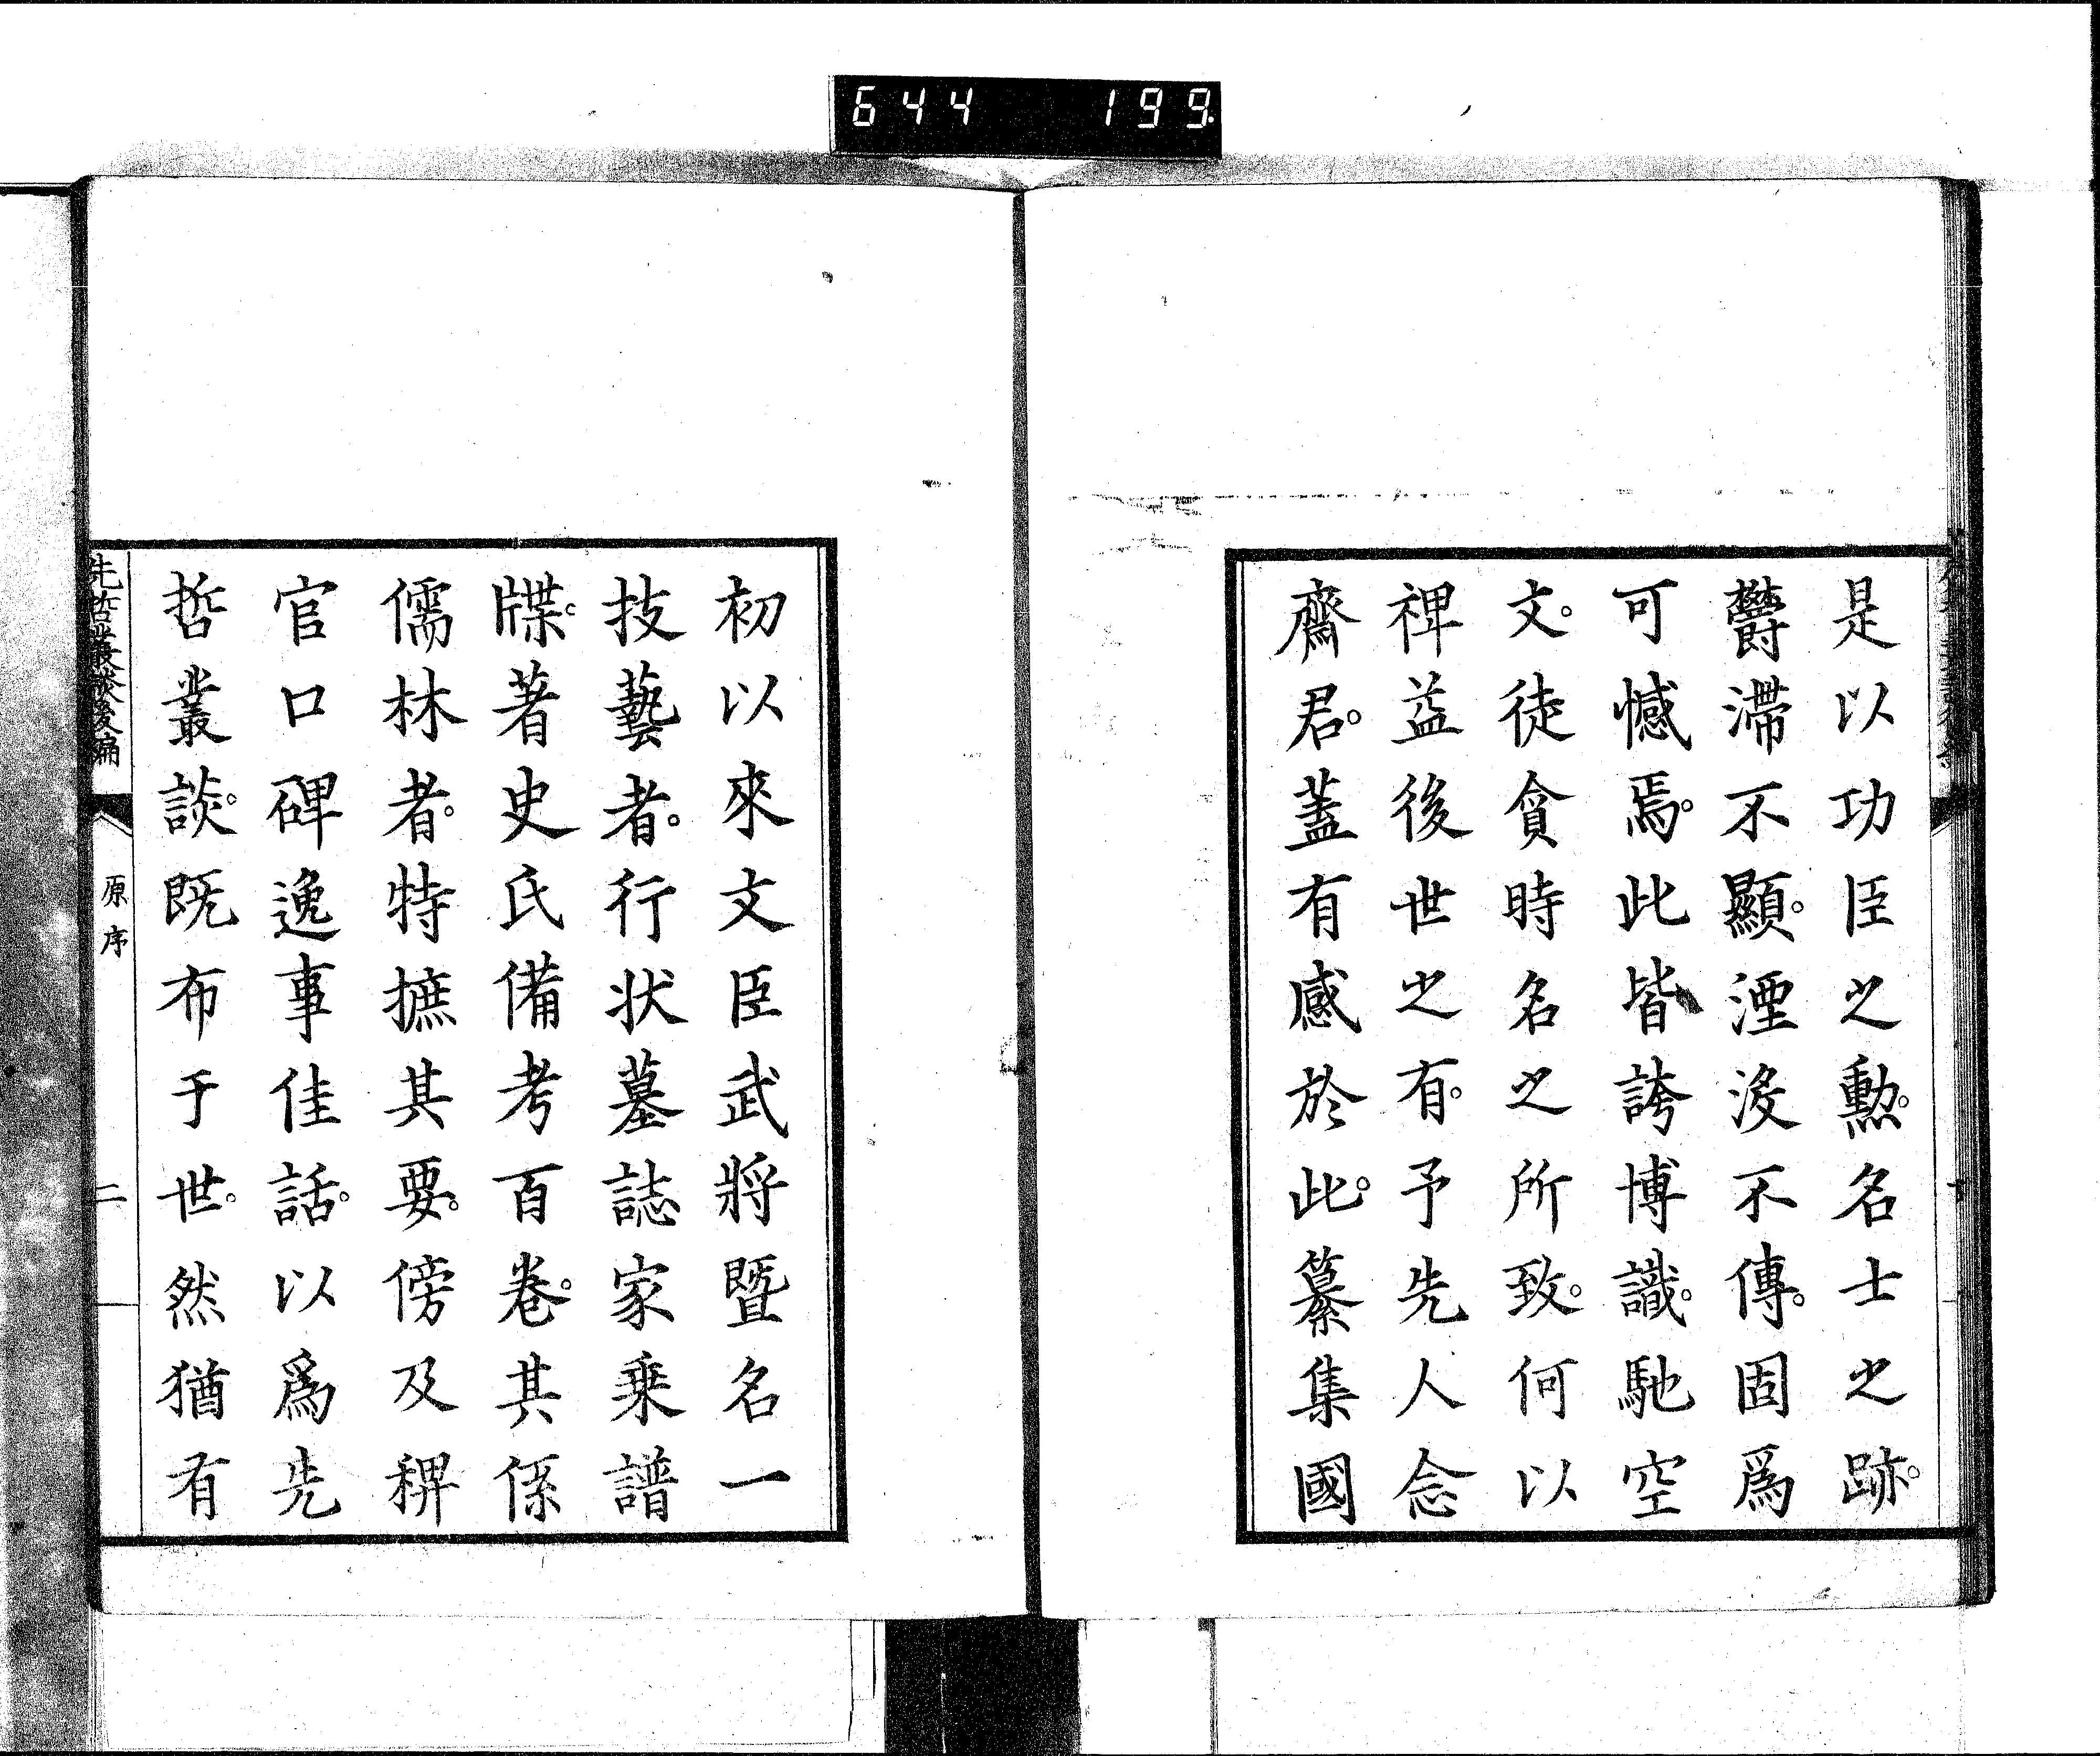 644 199
是以功臣之勲。名士之跡。
欝滯不顯。湮没不傳。固爲
可憾焉。此皆誇博識。馳空
文。徒貪時名之所致。何以
裨益後世之有。予先人念
齋君。蓋有感於此。纂集國
初以來文臣武將暨名一
技藝者。行状墓誌家乗譜
牒。著史氏備考百卷。其係
儒林者。特摭其要。傍及稗
官口碑逸事佳話。以爲先
哲叢談。既布于世。然猶有
先哲叢談後編
原序
二